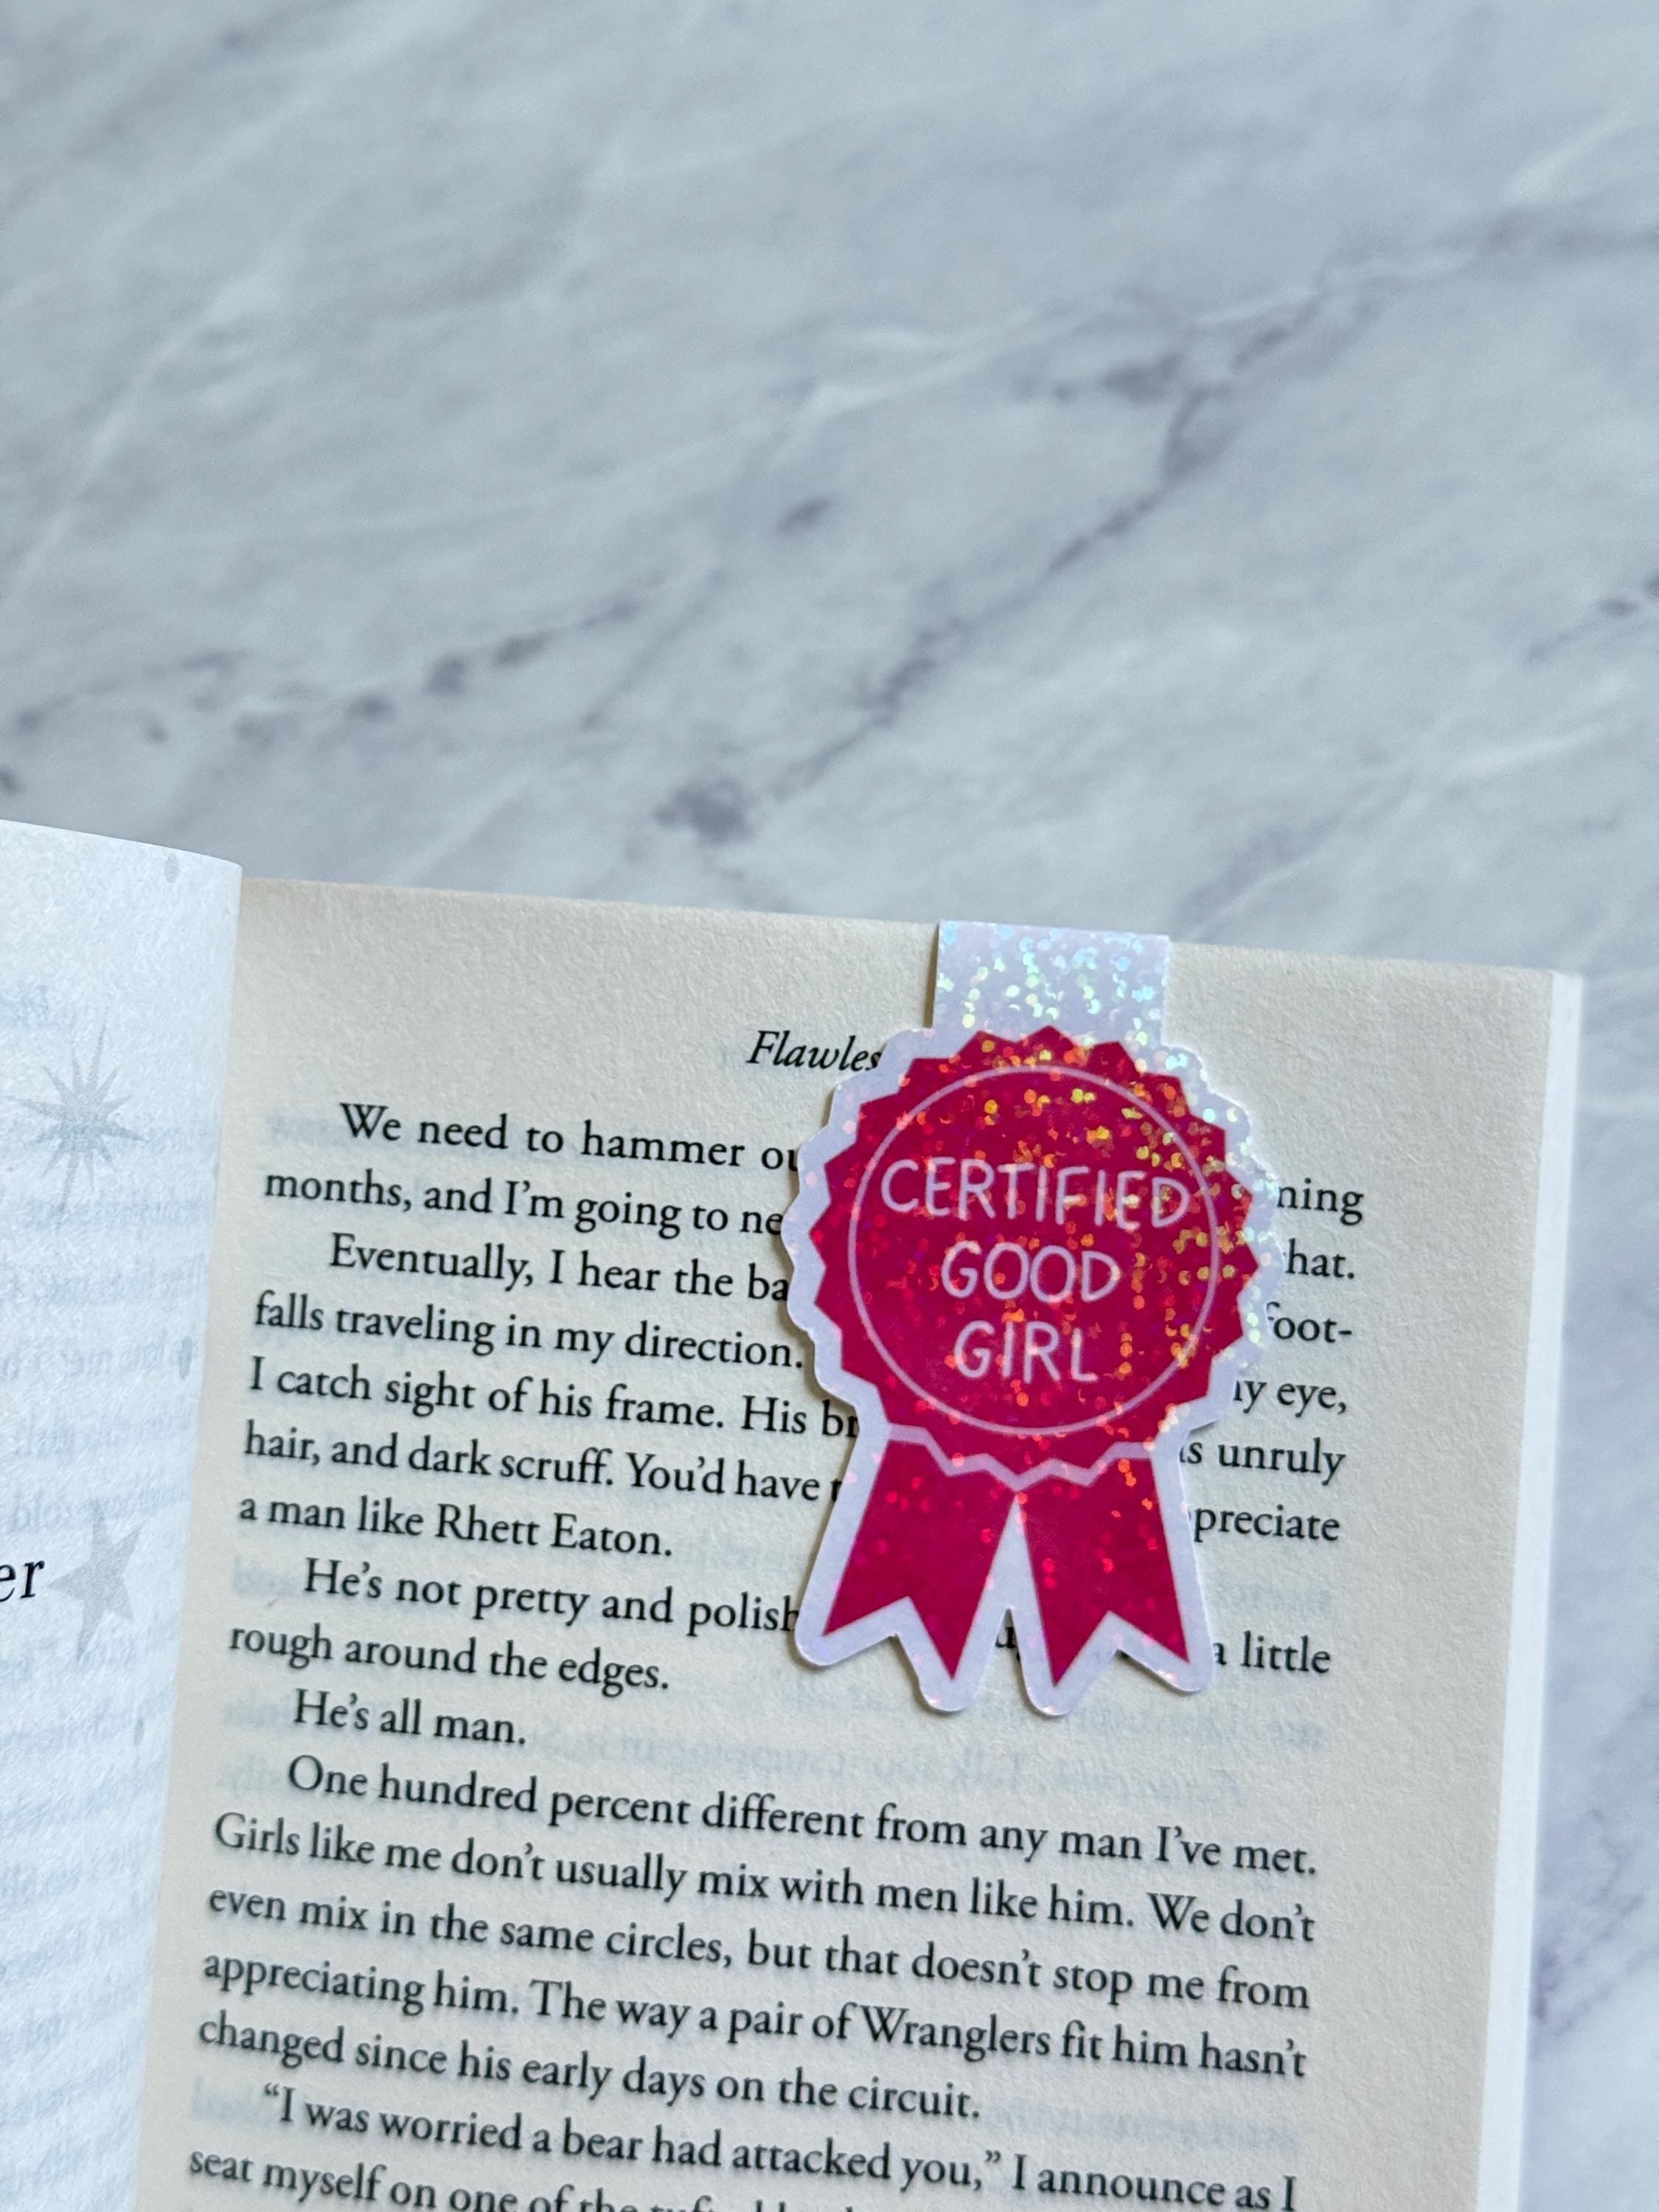 er
Flawles
We need to hammer ou
months, and I'm going to ne
hat.
Eventually, I hear the ba
foot-
falls traveling in my direction.
eye,
I catch sight of his frame. His br
unruly
hair, and dark scruff. You'd have
preciate
a man like Rhett Eaton.
He's not pretty and polish
a little
rough around the edges.
He's all man.
One hundred percent different from any man I've met.
Girls like me don't usually mix with men like him. We don't
even mix in the same circles, but that doesn't stop me from
appreciating him. The way a pair of Wranglers fit him hasn't
changed since his early days on the circuit.
“I was worried a bear had attacked you,” I announce as I
seat myself on one of the
CERTIFIED
GOOD
GIRL